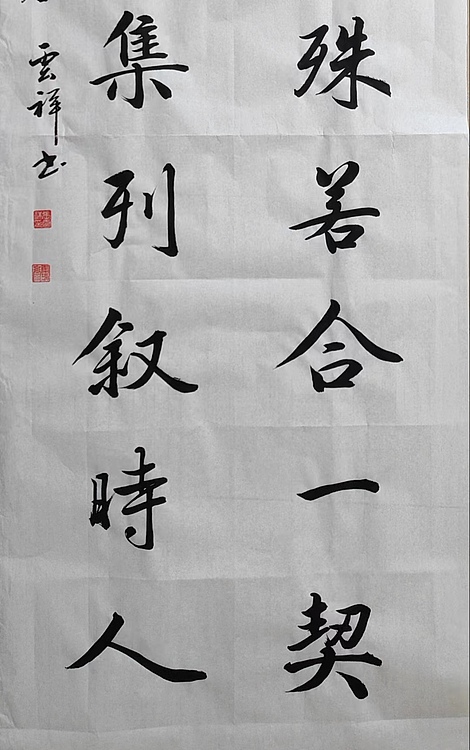 殊若合一契
集列叙時人
雲祥书